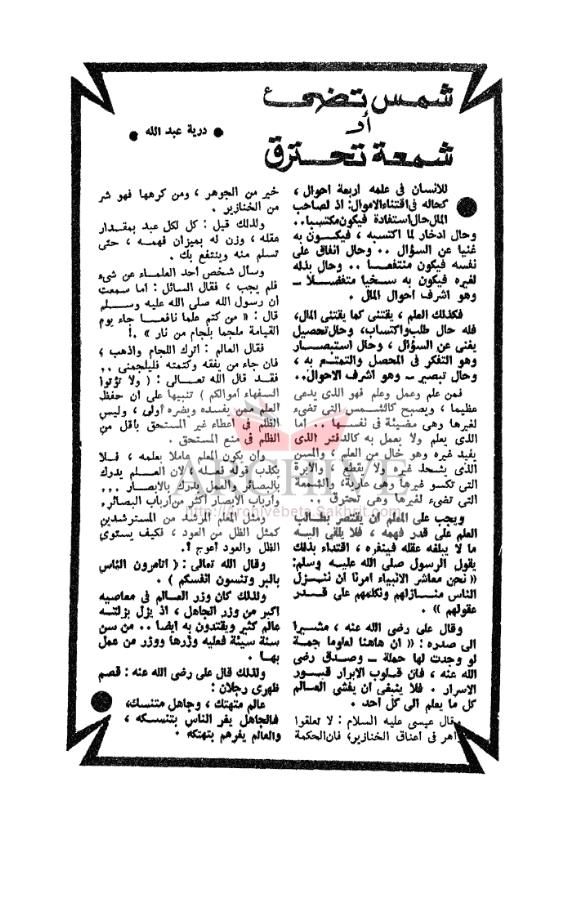 شمس تضىء
أو
شمعة تحترق
• درية عبد الله •
للانسان فى علمه اربعة احوال ،
كحاله فى اقتناء الاموال: اذ لصاحب
المال حال استفادة فيكون مكتسبا..
وحال ادخار لما اكتسبه ، فيكون به
غنيا عن السؤال .. وحال انفاق على
نفسه فيكون منتفعا .. وحال بذله
لغيره فيكون به سخيا متفضلا ــ
وهو اشرف احوال المال .
فكذلك العلم ، يقتنى كما يقتنى المال،
فله حال طلب واكتساب، وحال تحصيل
يغنى عن السؤال ، وحال استبصار
وهو التفكر فى المحصل والتمتع به ،
وحال تبصير ــ وهو اشرف الاحوال..
فمن علم وعمل وعلم فهو الذى يدعى
عظيما ، ويصبح كالشمس التى تضىء
لغيرها وهى مضيئة فى نفسها .. اما
الذى يعلم ولا يعمل به كالدفتر الذى
يفيد غيره وهو خال من العلم ، والمسن
الذى يشحذ غيره ولا يقطع ، والابرة
التى تكسو غيرها وهى عارية، والشمعة
التى تضىء لغيرها وهى تحترق ..
ويجب على المعلم ان يقتصر بطالب
العلم على قدر فهمه ، فلا يلقى اليه
ما لا يبلغه عقله فينفره ، اقتداء بذلك
يقول الرسول صلى الله عليه وسلم:
« نحن معاشر الانبياء امرنا ان ننزل
الناس منازلهم ونكلمهم على قدر
عقولهم » .
وقال على رضى الله عنه ، مشيرا
الى صدره : « ان هاهنا لعلوما جمة
لو وجدت لها حملة ــ وصدق رضى
الله عنه ، فان قلوب الابرار قبور
الاسرار . فلا ينبغى ان يفشى العالم
كل ما يعلم الى كل احد .
وقال عيسى عليه السلام : لا تعلقوا
الجواهر فى اعناق الخنازير، فان الحكمة
خير من الجوهر ، ومن كرهها فهو شر
من الخنازير .
ولذلك قيل : كل لكل عبد بمقدار
عقله ، وزن له بميزان فهمه ، حتى
تسلم منه وينتفع بك .
وسأل شخص أحد العلماء عن شىء
فلم يجب ، فقال السائل : أما سمعت
أن رسول الله صلى الله عليه وسلم
قال : « من كتم علما نافعا جاء يوم
القيامة ملجما بلجام من نار » .!
فقال العالم : اترك اللجام واذهب ؛
فان جاء من يفقه وكتمته فليلجمنى ..
فقد قال الله تعالى : ( ولا تؤتوا
السفهاء أموالكم ) تنبيها على ان حفظ
العلم ممن يفسده ويضره أولى ، وليس
الظلم فى اعطاء غير المستحق بأقل من
الظلم فى منع المستحق .
وأن يكون المعلم عاملا بعلمه ، فلا
يكذب قوله فعله ، لان العلم يدرك
بالبصائر والعمل يدرك بالابصار ...
وأرباب الابصار أكثر من أرباب البصائر.
ومثل المعلم المرشد من المسترشدين
كمثل الظل من العود ، فكيف يستوى
الظل والعود أعوج ؟.
وقال الله تعالى : ( اتأمرون الناس
بالبر وتنسون انفسكم ) .
ولذلك كان وزر العالم فى معاصيه
اكبر من وزر الجاهل ، اذ يزل بزلته
عالم كثير ويقتدون به ايضا .. من سن
سنة سيئة فعليه وزرها ووزر من عمل
بها .
ولذلك قال على رضى الله عنه : قصم
ظهرى رجلان :
عالم متهتك ، وجاهل متنسك،
فالجاهل يغر الناس بتنسكه ،
والعالم يغرهم بتهتكه .
ARCHIVE
http://Archivebeta.Sakhrit.com